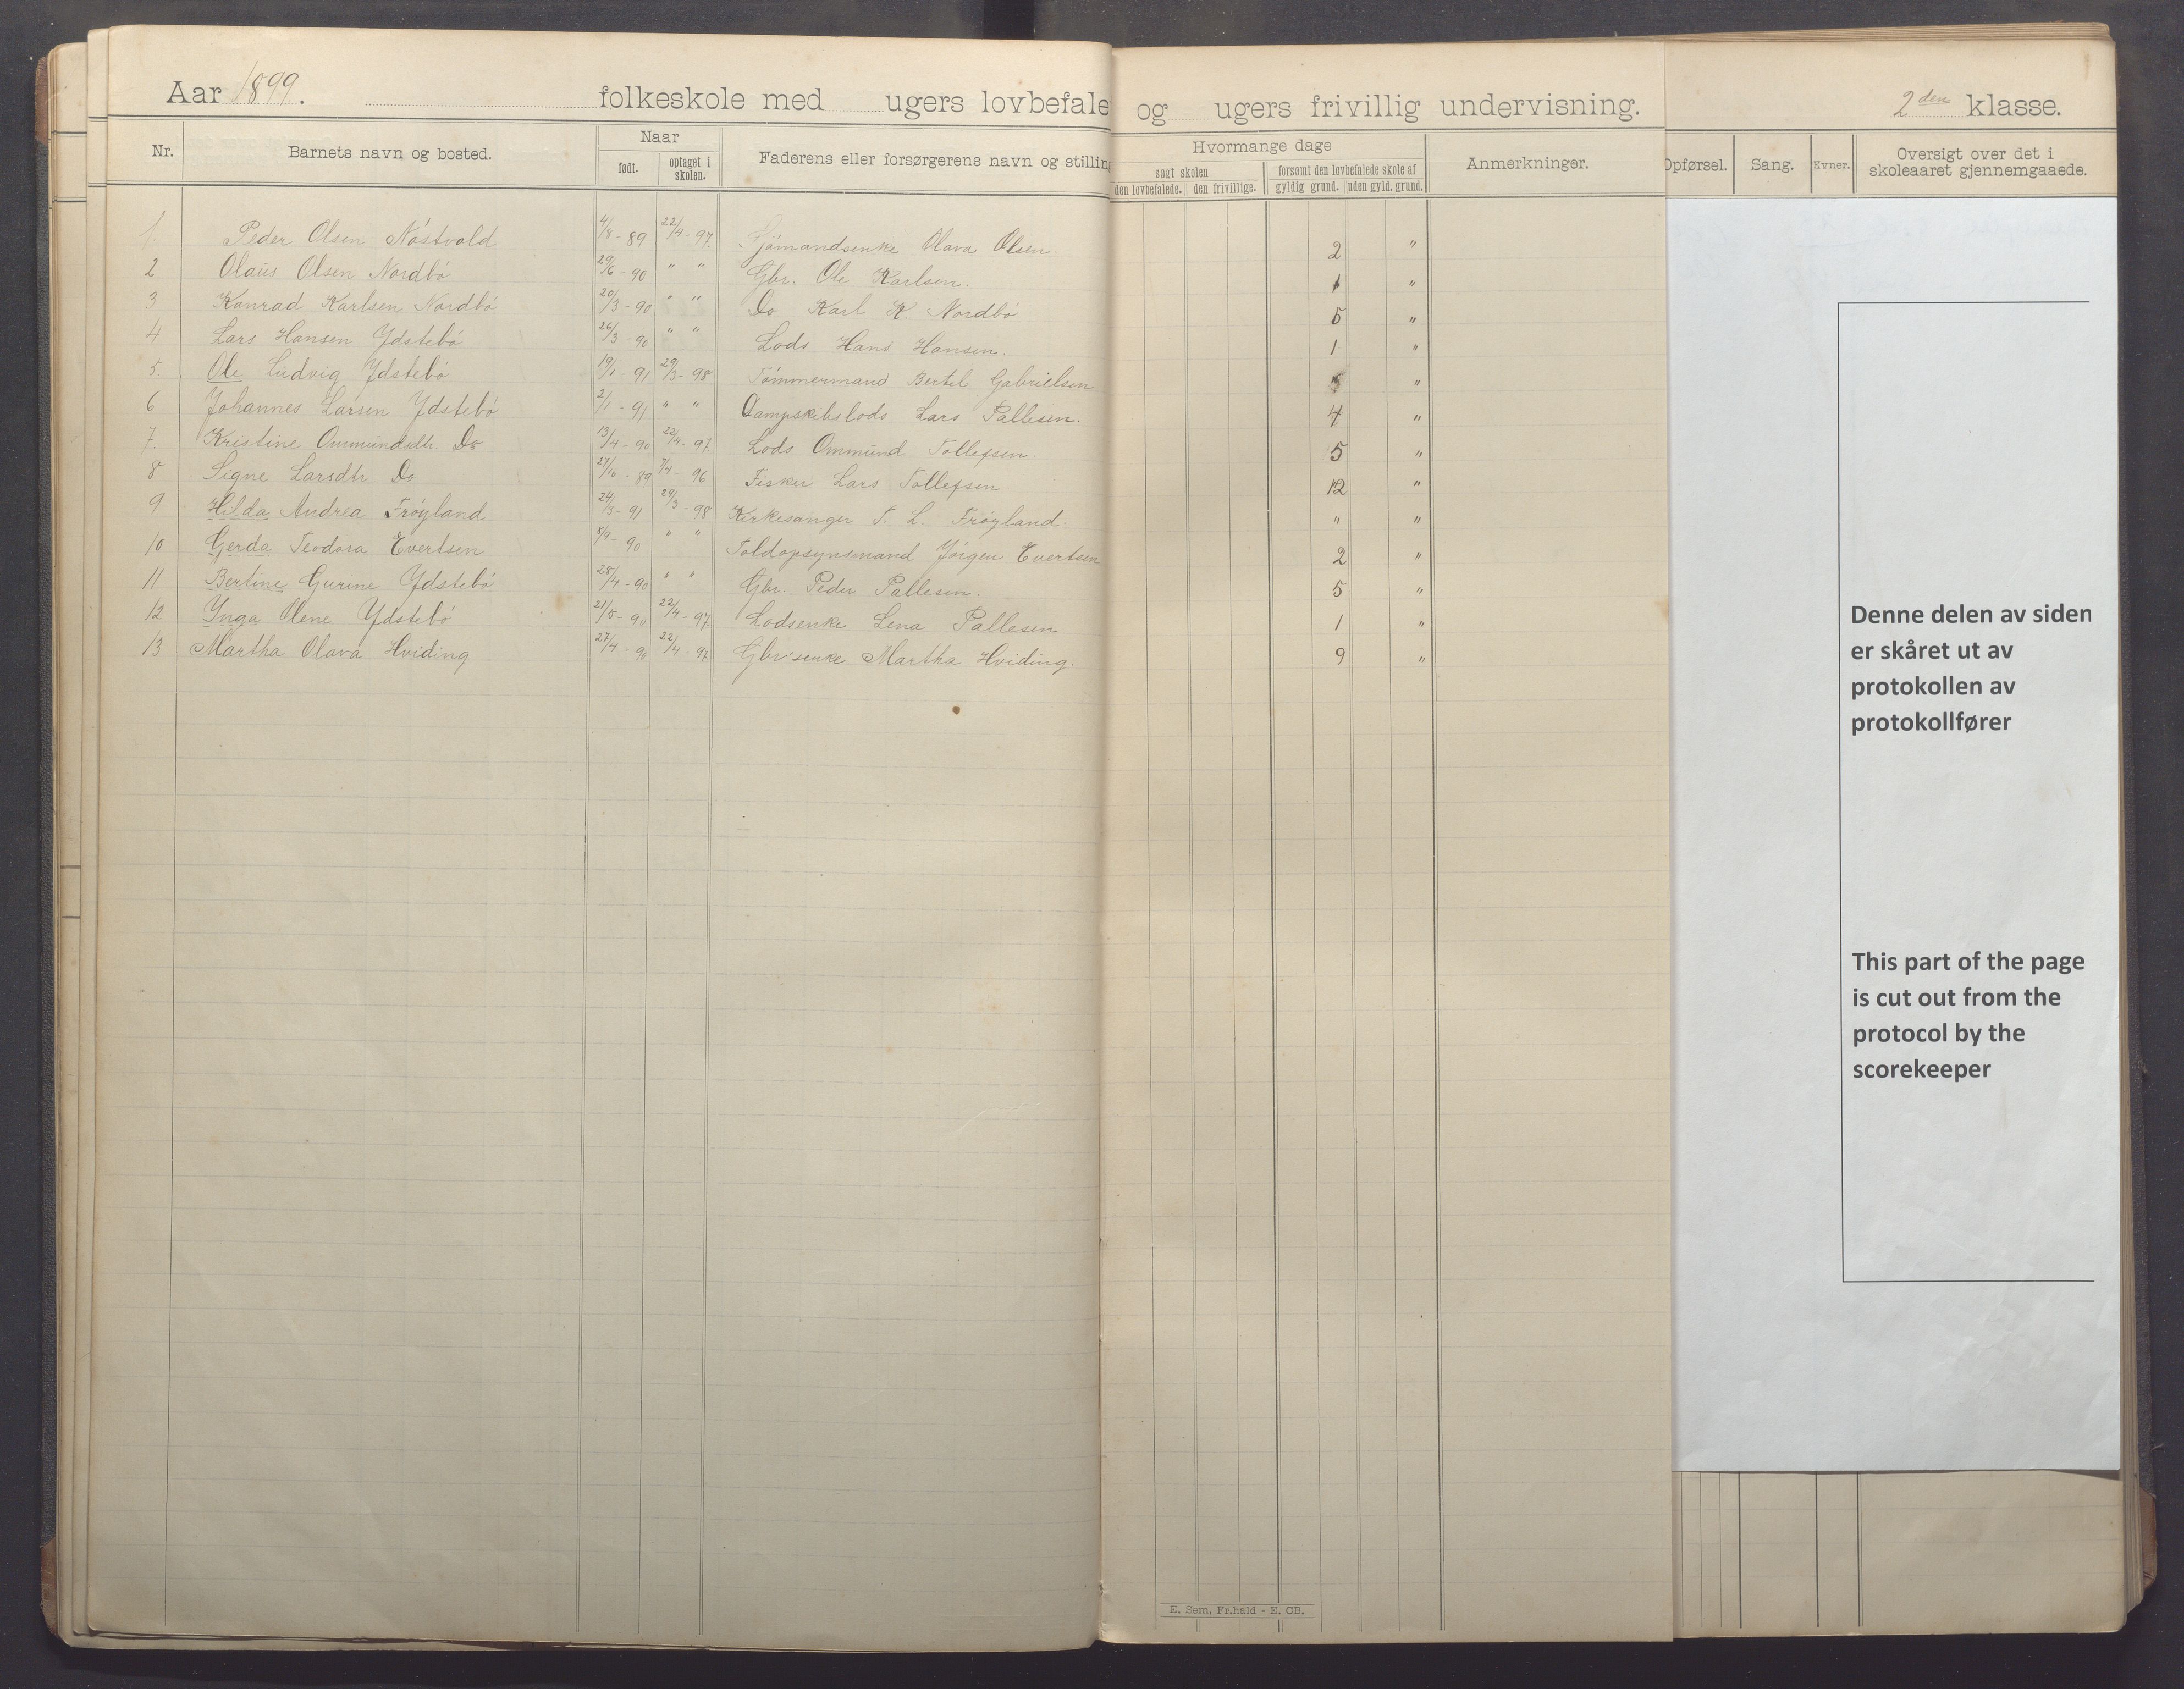 Aar 1899. folkeskole med ugers lovbefale og ugers frivillig undervisning. 2den klasse.
Nr. Barnets navn og bosted. Naar født. optaget i skolen. Faderens eller forsørgerens navn og stilling Hvormange dage søgt skolen den lovbefalede. den frivillige. forsømt den lovbefalede skole af gyldig grund. uden gyld. grund. Anmerkninger. Opførsel. Sang. Evner. Oversigt over det i skoleaaret gjennemgaaede.
1. Peder Olsen Nóstvold 4/8-89 22/4-97. Sjömandsenke Olava Olsen. 2 "
2 Olaüs Olsen Nordbó 29/6-90 " " Gbr. Ole Karlsen. 1 "
3 Konrad Karlsen Nordbó 20/3-90 " " Do Karl K. Nordbó 5 "
4 Lars Hansen Ydstebó 26/3-90 " " Lods Hans Hansen. 1 "
5. Ole Lüdvig Ydstebó 19/1-91 29/3-98 Tómmermand Bertel Gabrielsen "
6 Johannes Larsen Ydstebó 2/1-91 " " Dampskibslods Lars Pallesen. 4 "
7. Kristine Ommündsdtr. Do 13/4-90 22/4-97 Lods Ommünd Tollefsen. 5 "
8 Signe Larsdtr Do 27/10-89 7/4-96 Fisker Lars Tollefsen. 12 "
9 Hilda Andrea Fróyland 24/3-91 29/3-98 Kirkesanger T. L. Fróyland. " "
10 Gerda Teodora Evertsen 8/9-90 " " Toldopsynsmand Jórgen Evertsen 2 "
11 Bertine Gurine Ydstebó 28/4-90 " " Gbr. Peder Pallesen. 5 "
12 Ynga Olene Ydstebó 21/5-90 22/4-97. Lodsenke Lena Pallesen 1 "
13 Martha Olava Hviding 27/4-90 22/4-97. Gbr.senke Martha Hviding. 9 "
E. Sem, Fr.hald - E. CB.
Denne delen av siden
er skåret ut av
protokollen av
protokollfører
This part of the page
is cut out from the
protocol by the
scorekeeper